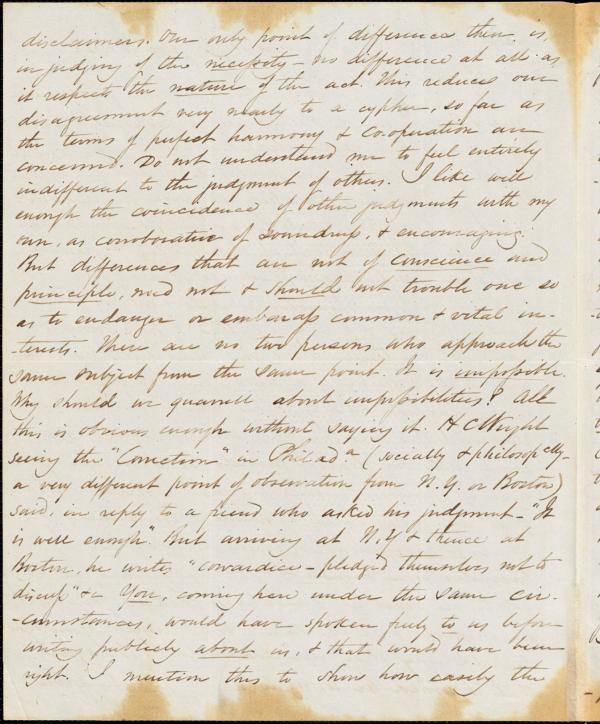 disclaimers. Our only point of difference then is
in judging of the necessity – no difference at all as
it respects the nature of the act. This reduces our
disagreement very nearly to a cypher, so far as
the terms of perfect harmony & co-operation are
concerned. Do not understand me to feel entirely
indifferent to the judgment of others. I like well
enough the coincidence of other judgments with my
own, as corroborative of soundness, & encouraging.
But differences that are not of conscience and
principle, need not & should not trouble one so
as to endanger or embarass common & vital in-
-terests. There are no two persons who approach the
same subject from the same point. It is impossible.
Why should we quarrel about impossibilities? All
this is obvious enough without saying it. H C Wright
seeing the "Correction" in Philada. (socially & philosophcally-
a very different point of observation from N.Y. or Boston)
said, in reply to a friend who asked his judgment – "It
is well enough". But arriving at N.Y & thence at
Boston, he writes "cowardice – pledged themselves not to
discuss" &c You, coming here under the same cir-
-cumstances, would have spoken freely to us before
writing publicly about us, & that would have been
right. I mention this to show how easily the